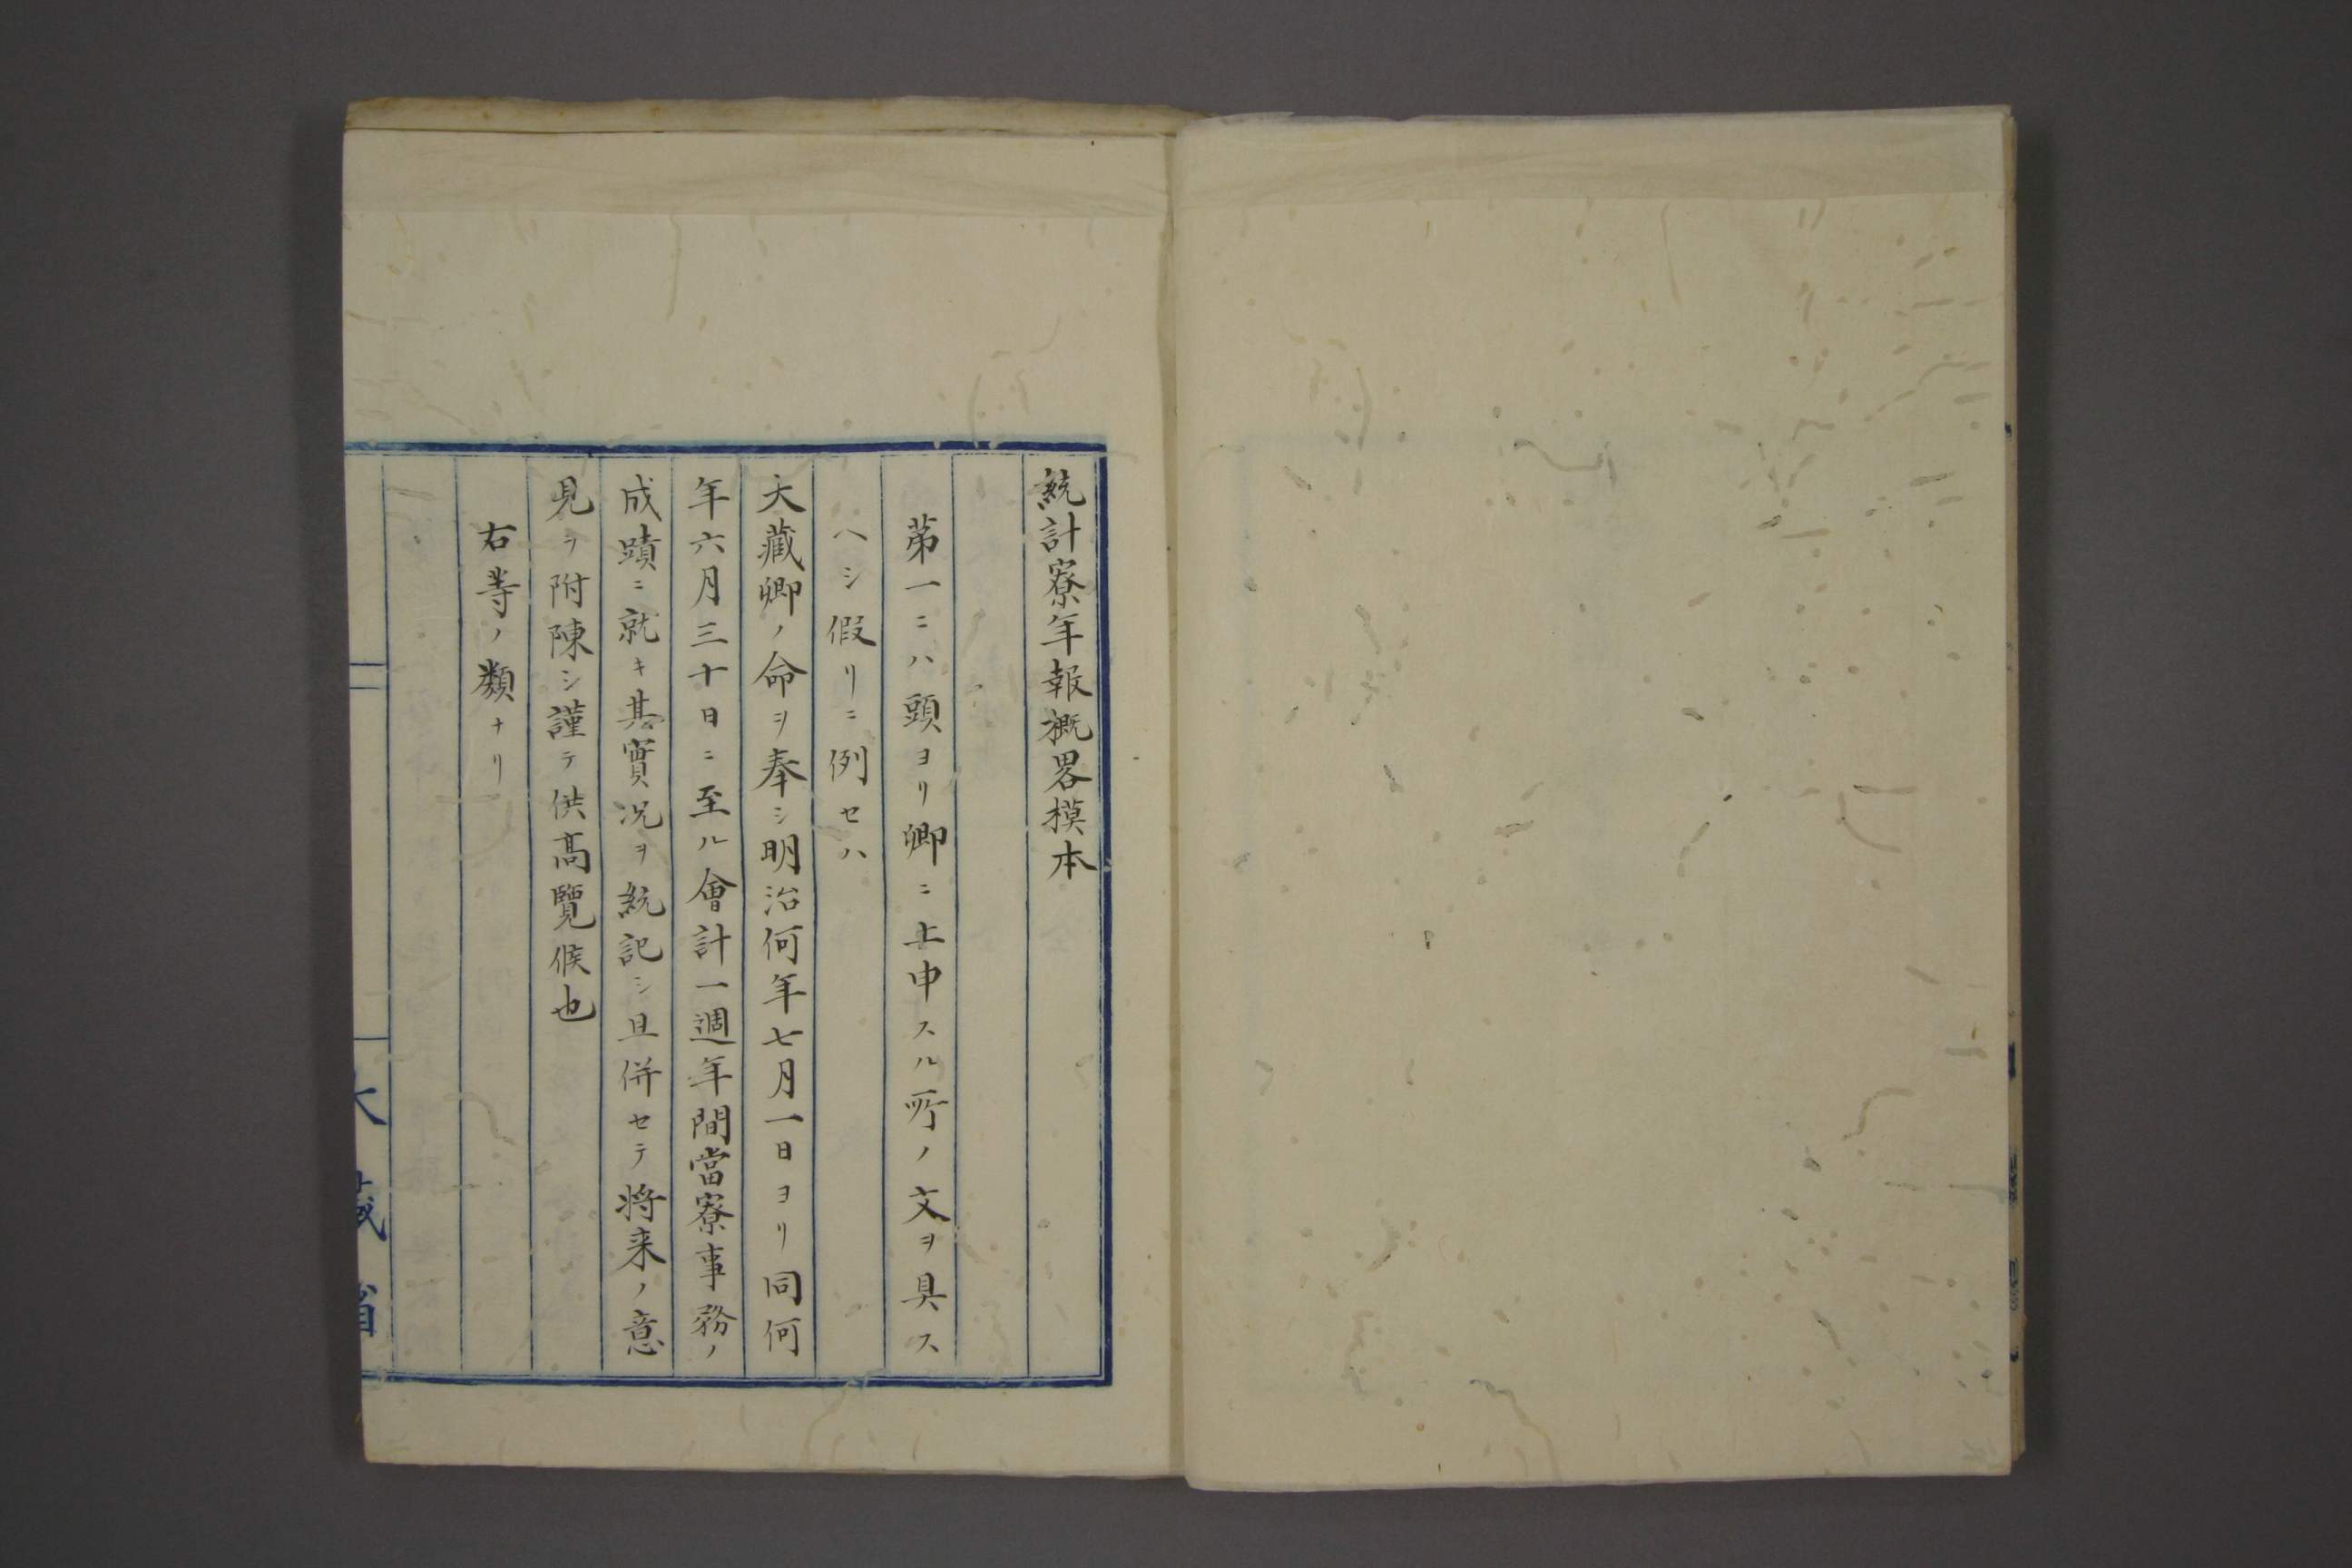 統計寮年報概畧模本
第一ニハ頭ヨリ卿ニ上申スル所ノ文ヲ具ス
ヘシ假リニ例セハ
大藏卿ノ命ヲ奉シ明治何年七月一日ヨリ同何
年六月三十日ニ至ル會計一週年間當寮事務ノ
成蹟ニ就キ其實況ヲ統記シ且併セテ将来ノ意
見ヲ附陳シ謹テ供高覽候也
右等ノ類ナリ
大藏省